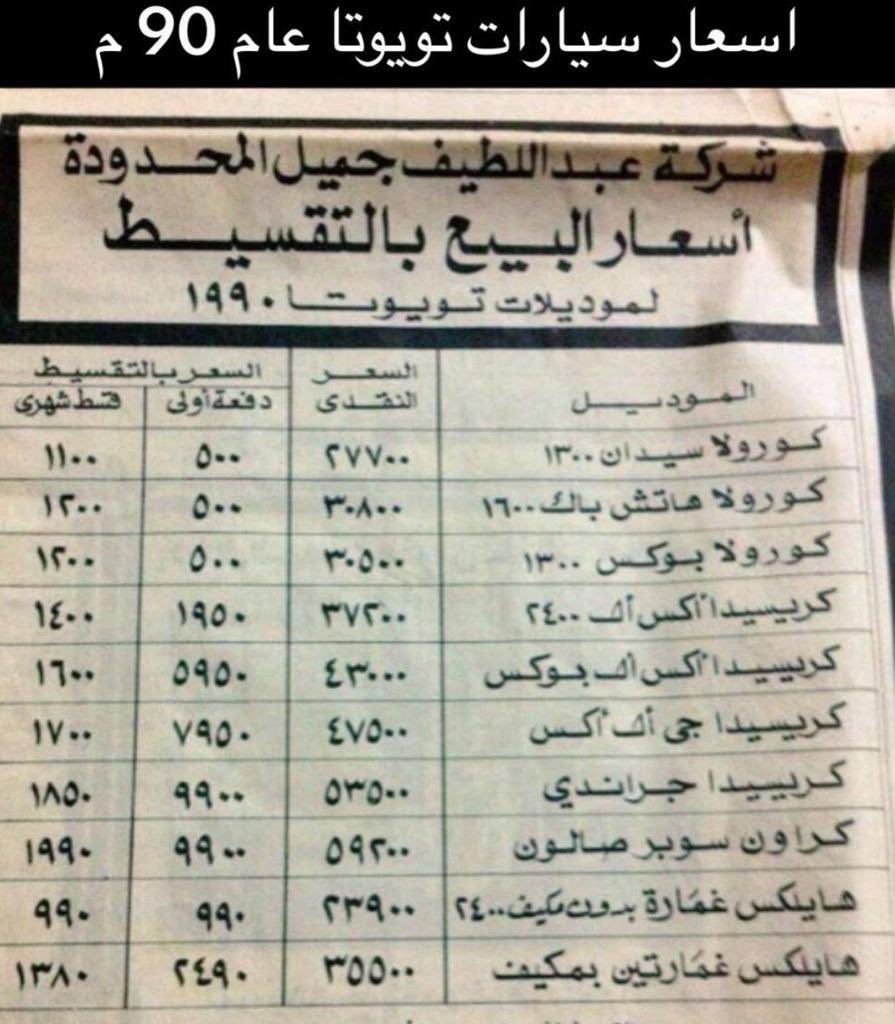 اسعار سيارات تويوتا عام 90 م
شركة عبداللطيف جميل المحدودة
أسعار البيع بالتقسيط
لموديلات تويوتا ١٩٩٠
الموديل السعر النقدى السعر بالتقسيط
دفعة أولى قسط شهرى
كورولا سيدان ١٣٠٠ ٢٧٧٠٠ ٥٠٠ ١١٠٠
كورولا هاتش باك ١٦٠٠ ٣٠٨٠٠ ٥٠٠ ١٢٠٠
كورولا بوكس ١٣٠٠ ٣٠٥٠٠ ٥٠٠ ١٢٠٠
كريسيدا أكس أل ٢٤٠٠ ٣٧٢٠٠ ١٩٥٠ ١٤٠٠
كريسيدا أكس أل بوكس ٤٣٠٠٠ ٥٩٥٠ ١٦٠٠
كريسيدا جى أل أكس ٤٧٥٠٠ ٧٩٥٠ ١٧٠٠
كريسيدا جراندي ٥٣٥٠٠ ٩٩٠٠ ١٨٥٠
كراون سوبر صالون ٥٩٢٠٠ ٩٩٠٠ ١٩٩٠
هايلكس غمارة بدون مكيف ٢٤٠٠ ٢٣٩٠٠ ٩٩٠ ٩٩٠
هايلكس غمارتين بمكيف ٣٥٥٠٠ ٢٤٩٠ ١٣٨٠